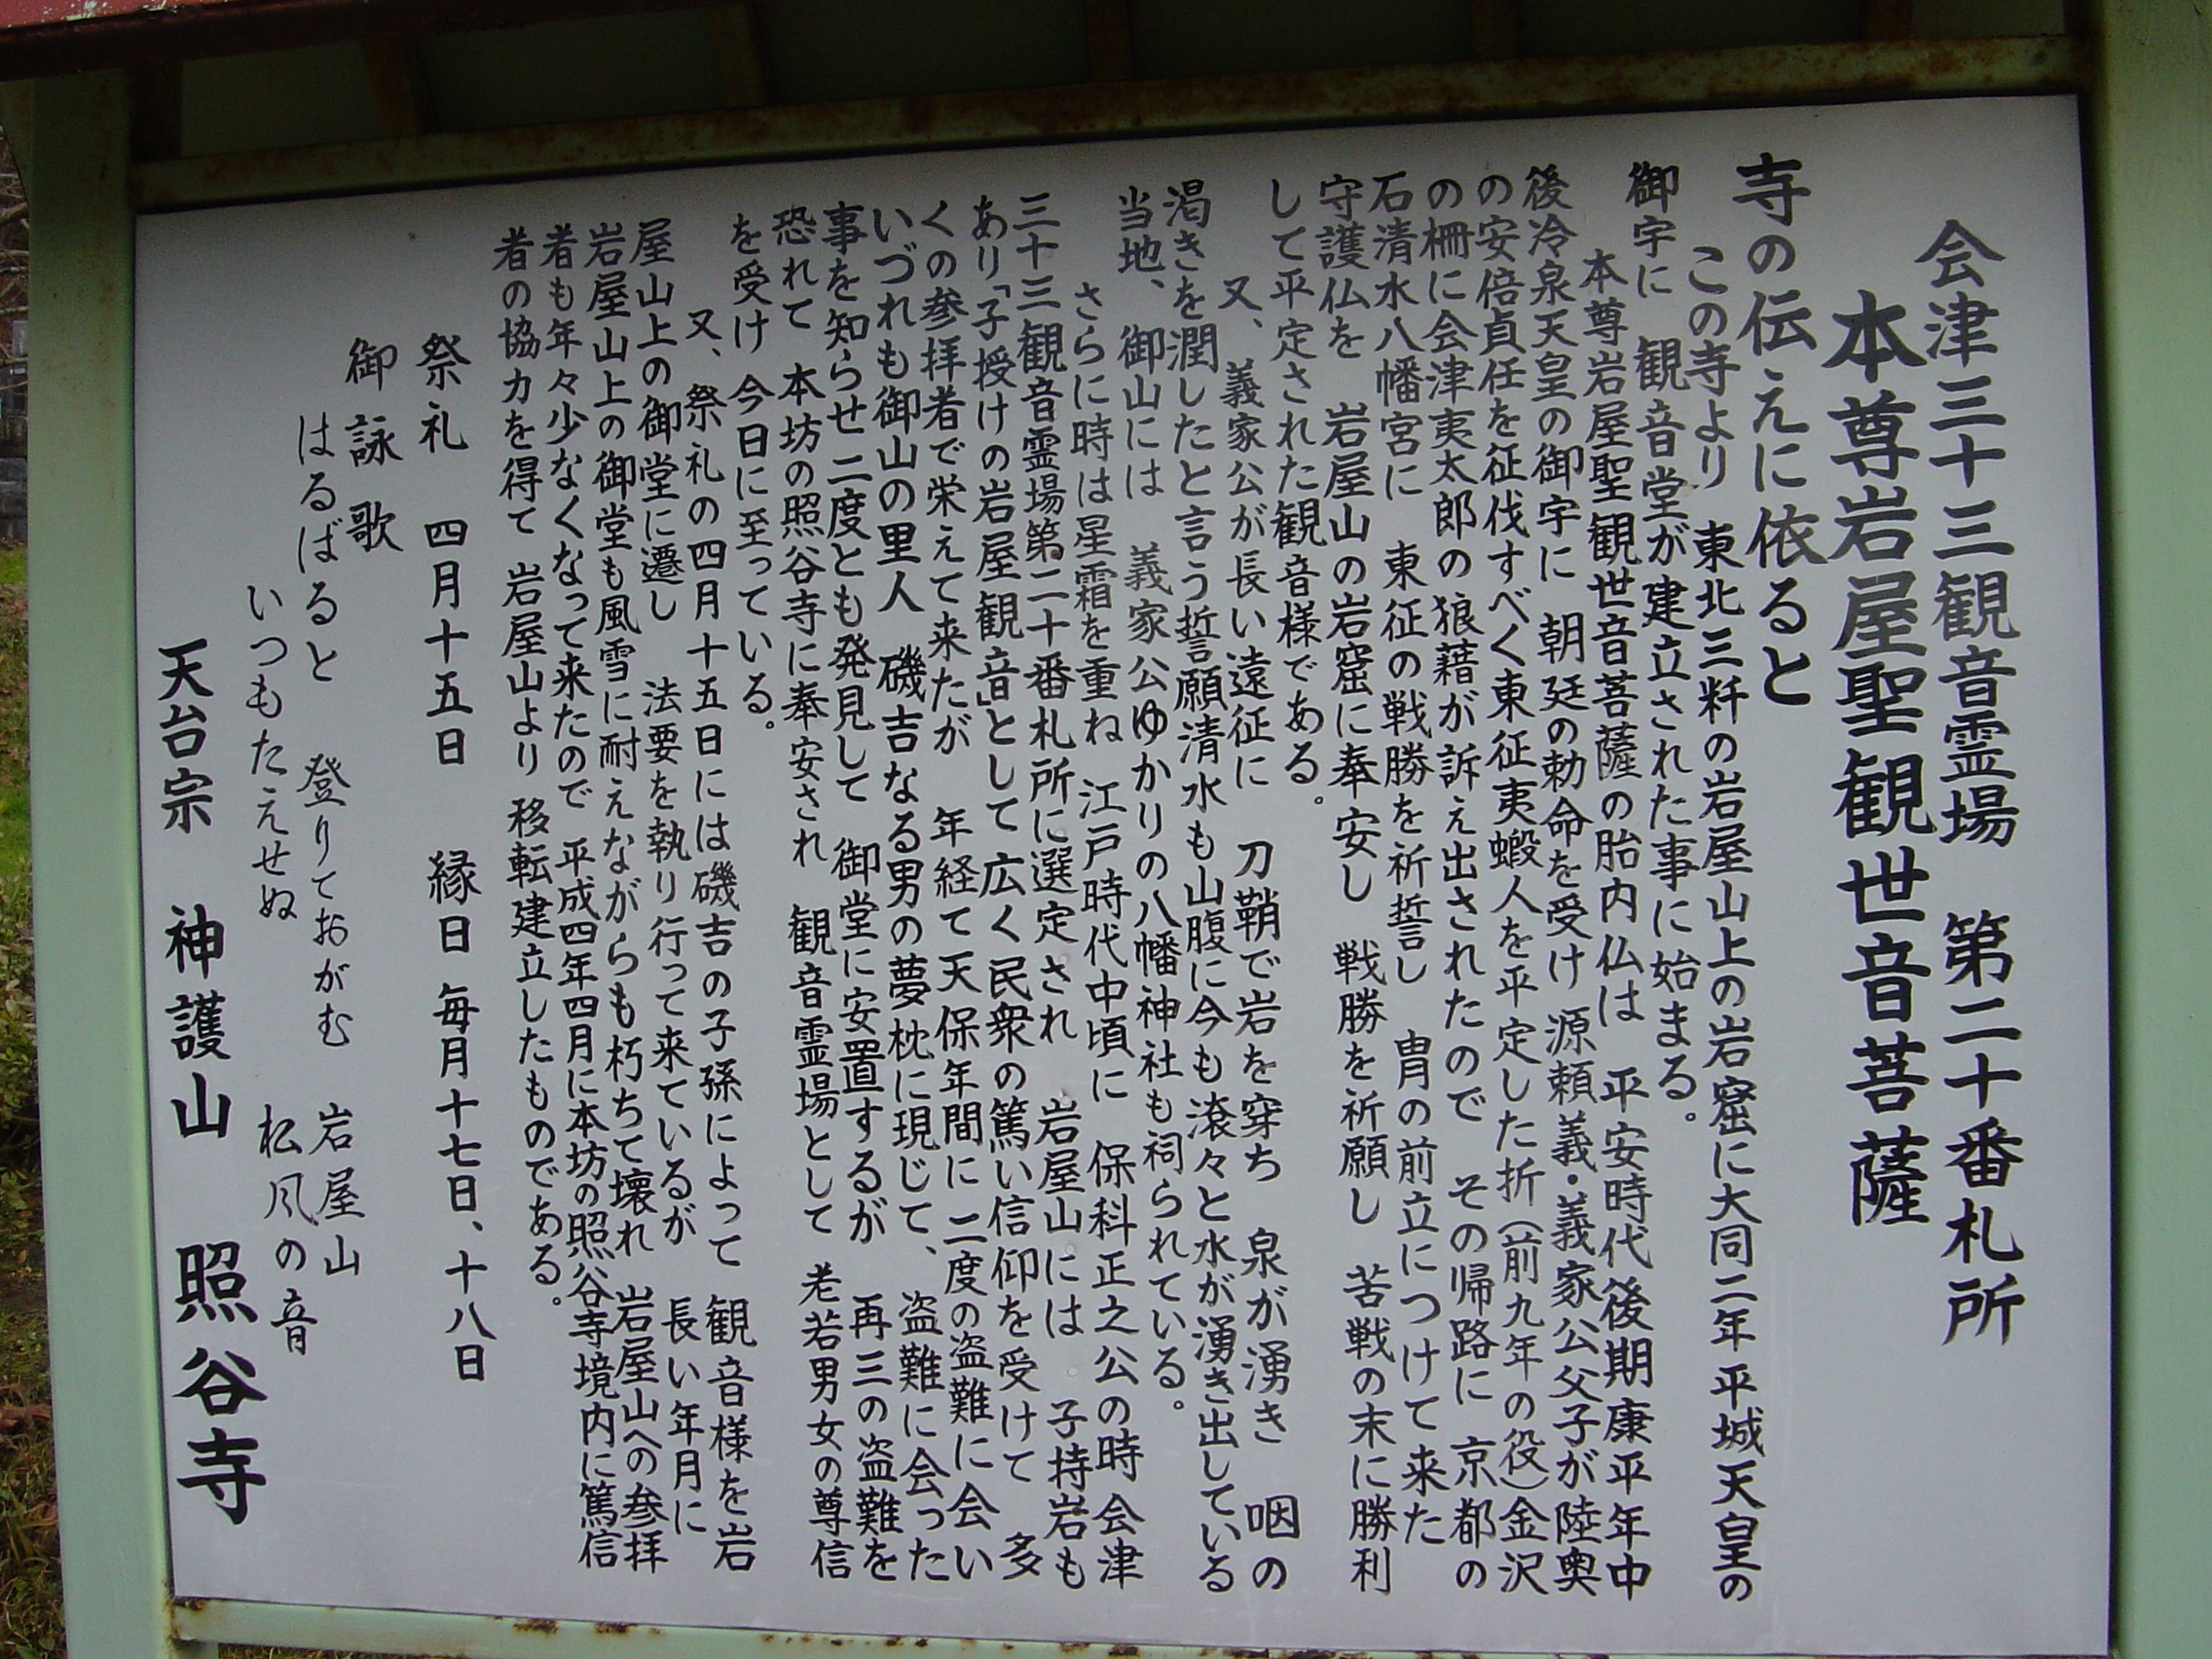 会津三十三観音霊場　第二十番札所
本尊岩屋聖観世音菩薩
寺の伝えに依ると
この寺より　東北三粁の岩屋山上の岩窟に大同二年　平城天皇の
御宇に　観音堂が建立された事に始まる。
本尊岩屋聖観世音菩薩の胎内仏は　平安時代後期康平年中
後冷泉天皇の御宇に　朝廷の勅命を受け　源頼義・義家公父子が陸奥
の安倍貞任を征伐すべく東征夷蝦人を平定した折（前九年の役）金沢
の柵に会津夷太郎の狼藉が訴え出されたので　その帰路に　京都の
石清水八幡宮に　東征の戦勝を祈誓し　冑の前立につけて来た
守護仏を　岩屋山の岩窟に奉安し　戦勝を祈願し　苦戦の末に勝利
して平定された観音様である。
又、義家公が長い遠征に　刀鞘で岩を穿ち　泉が湧き　咽の
渇きを潤したと言う誓願清水も山腹に今も滾々と水が湧き出している
当地、御山には　義家公ゆかりの八幡神社も祠られている。
さらに時は星霜を重ね　江戸時代中頃に　保科正之公の時　会津
三十三観音霊場第二十番札所に選定され　岩屋山には　子持岩も
あり「子授けの岩屋観音」として広く民衆の篤い信仰を受けて　多
くの参拝者で栄えて来たが　年経て天保年間に　二度の盗難に会い
いづれも御山の里人　磯吉なる男の夢枕に現じて、盗難に会った
事を知らせ二度とも発見して　御堂に安置するが　再三の盗難を
恐れて　本坊の照谷寺に奉安され　観音霊場として　老若男女の尊信
を受け　今日に至っている。
又、祭礼の四月十五日には磯吉の子孫によって　観音様を岩
屋山上の御堂に遷し　法要を執り行って来ているが　長い年月に
岩屋山上の御堂も風雪に耐えながらも朽ちて壊れ　岩屋山への参拝
者も年々少なくなって来たので　平成四年四月に本坊の照谷寺境内に篤信
者の協力を得て　岩屋山より　移転建立したものである。
祭礼　四月十五日　縁日　毎月十七日、十八日
御詠歌
はるばると　登りておがむ　岩屋山
いつもたえせぬ　松風の音
天台宗　神護山　照谷寺